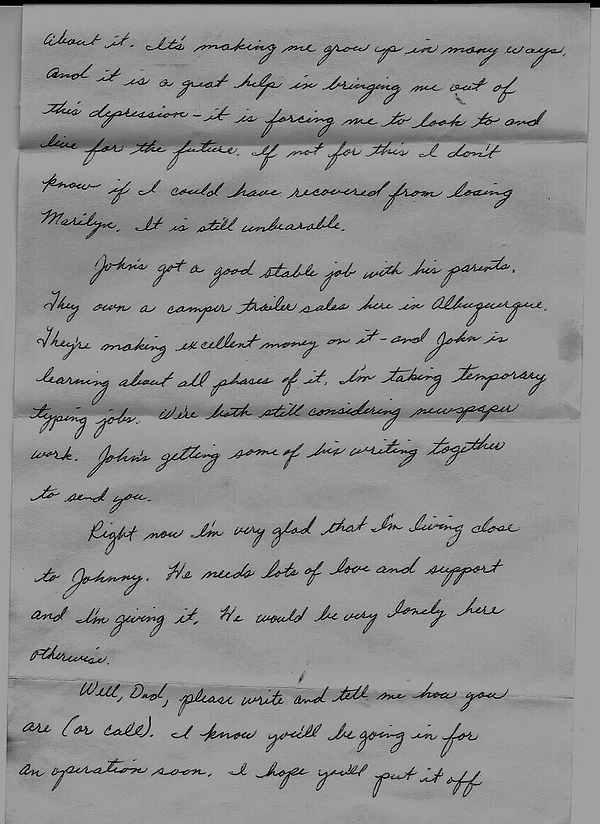 about it. It's making me grow up in many ways.
And it is a great help in bringing me out of
this depression - it is forcing me to look to and
live for the future. If not for this I don't
know if I could have recovered from losing
Marilyn. It is still unbearable.
John's got a good stable job with his parents.
They own a camper trailer sales here in Albuquerque.
They're making excellent money on it - and John is
learning about all phases of it. I'm taking temporary
typing jobs. We're both still considering newspaper
work. John's getting some of his writing together
to send you.
Right now I'm very glad that I'm living close
to Johnny. He needs lots of love and support
and I'm giving it. He would be very lonely here
otherwise.
Well, Dad, please write and tell me how you
are (or call). I know you'll be going in for
an operation soon. I hope you'll put it off